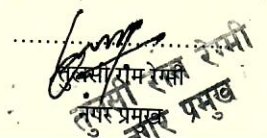 ....................
तुलसी राम रेग्मी
नगर प्रमुख
तुलसी राम रेग्मी
नगर प्रमुख